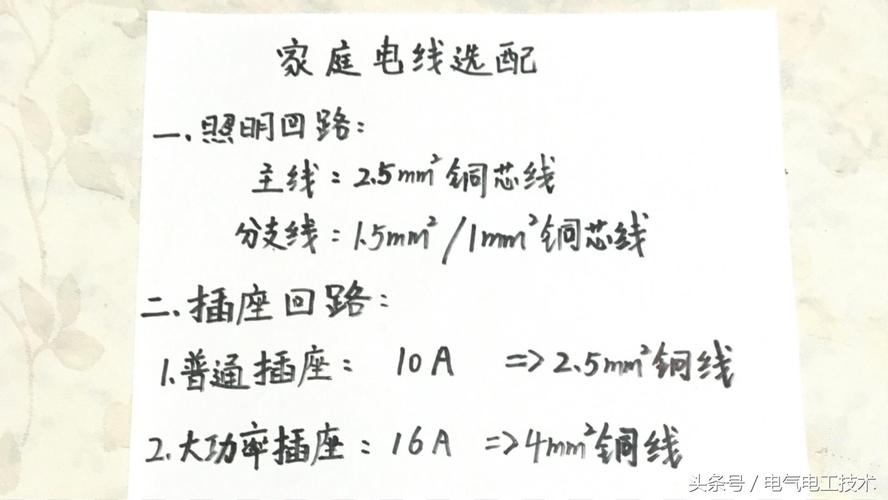 家庭电线选配
一、照明回路：
主线：2.5mm²铜芯线
分支线：1.5mm²/1mm²铜芯线
二、插座回路：
1.普通插座：10A => 2.5mm²铜线
2.大功率插座：16A => 4mm²铜线
头条号 / 电气电工技术